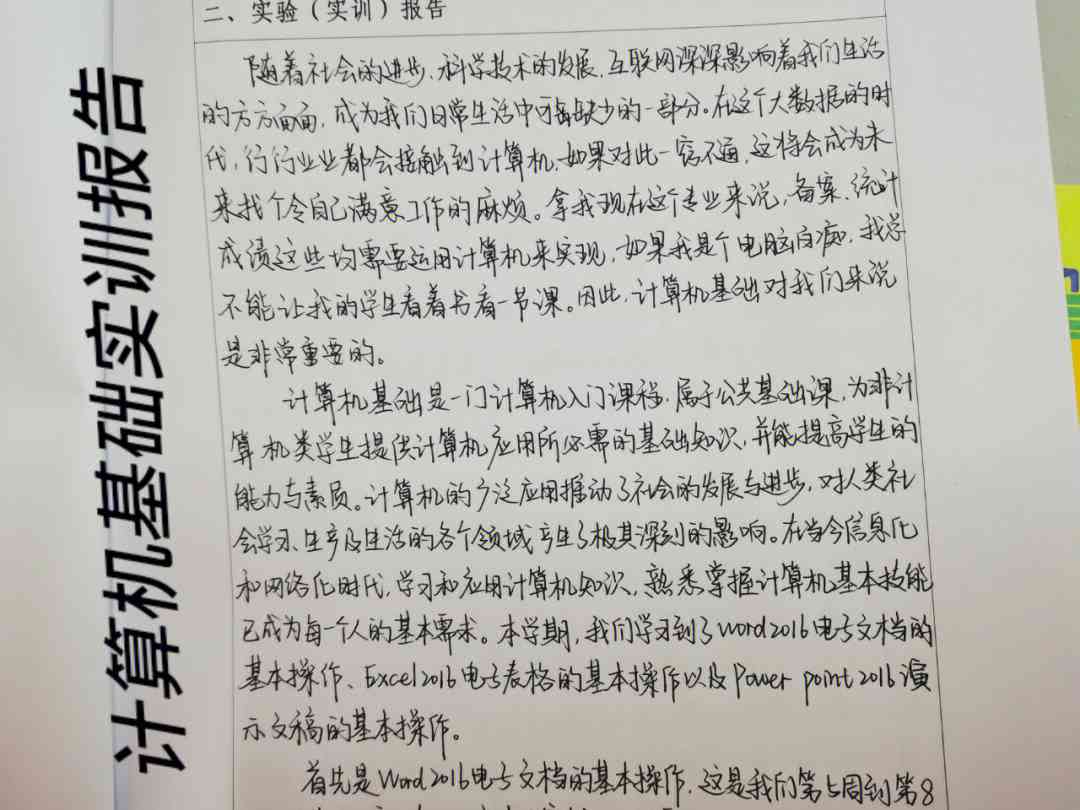 计算机基础实训报告
二、实验（实训）报告
随着社会的进步，科学技术的发展，互联网深深影响着我们生活
的方方面面，成为我们日常生活中不可缺少的一部分。在这个大数据的时
代，行行业业都会接触到计算机，如果对此一窍不通，这将会成为未
来找个令自己满意工作的麻烦。拿我现在这个专业来说，备案、统计
成绩这些均需要运用计算机来实现，如果我是个电脑白痴，我总
不能让我的学生看着书看一节课。因此，计算机基础对我们来说
是非常重要的。
计算机基础是一门计算机入门课程，属于公共基础课，为非计
算机类学生提供计算机应用所必需的基础知识，并能提高学生的
能力与素质。计算机的广泛应用推动了社会的发展与进步，对人类社
会学习、生产及生活的各个领域产生了极其深刻的影响。在当今信息化
和网络化时代，学习和应用计算机知识，熟悉掌握计算机基本技能
已成为每一个人的基本需求。本学期，我们学习到了Word2016电子文档的
基本操作、Excel2016电子表格的基本操作以及Power point2016演
示文稿的基本操作。
首先是Word2016电子文档的基本操作，这是我们第七周到第8